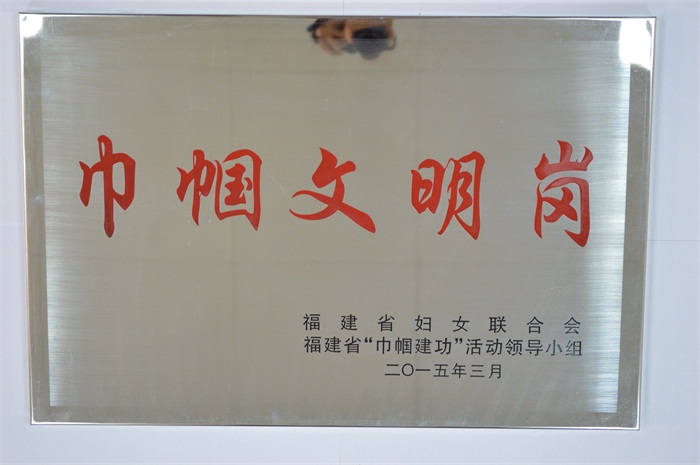 巾帼文明岗
福建省妇女联合会
福建省“巾帼建功”活动领导小组
二〇一五年三月